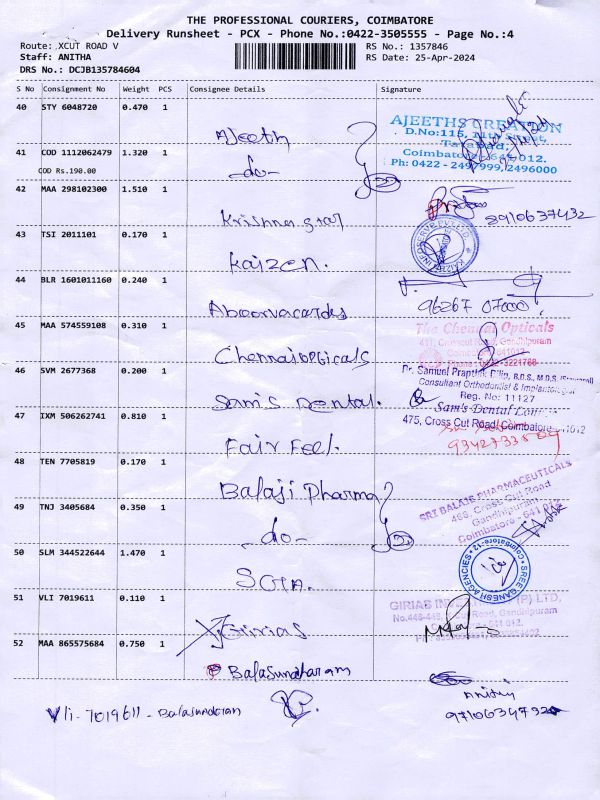 THE PROFESSIONAL COURIERS, COIMBATORE
Delivery Runsheet - PCX - Phone No.:0422-3505555 - Page No.:4
Route: XCUT ROAD V
RS No.: 1357846
Staff: ANITHA
RS Date: 25-Apr-2024
DRS No.: DCJB135784604
S No Consignment No Weight PCS Consignee Details Signature
40 STY 6048720 0.470 1
Ajeeth
AJEETHS CREATION
D.No:115, 11th Street,
Tatabad,
Coimbatore - 641 012.
Ph: 0422 - 2497999, 2496000
41 COD 1112062479 1.320 1
COD Rs.190.00
-do-
42 MAA 298102300 1.510 1
Krishna star
8910637432
43 TSI 2011101 0.170 1
Kaizen.
44 BLR 1601011160 0.240 1
Aboorvacardes
96267 07000
45 MAA 574559108 0.310 1
Chennaiopticals
The Chennai Opticals
411, Crosscut Road, Gandhipuram
46 SVM 2677368 0.200 1
Sam's Dental.
Dr. Samuel Prapthik Dilip, B.D.S., M.D.S.
Consultant Orthodontist & Implantologist
Reg. No: 11127
Sam's Dental
475, Cross Cut Road, Coimbatore
47 IXM 506262741 0.810 1
Fair Feel.
48 TEN 7705819 0.170 1
Balaji Pharma
SRI BALAJI PHARMACEUTICALS
468, Cross Cut Road
Gandhipuram
Coimbatore - 641 012
49 TNJ 3405684 0.350 1
-do-
50 SLM 344522644 1.470 1
SREE GANESH AGENCIES
Coimbatore-12
51 VLI 7019611 0.110 1
Girias
GIRIAS
Road, Gandhipuram
52 MAA 865575684 0.750 1
Balasundharam
Vli - 7019611 - Balasundram